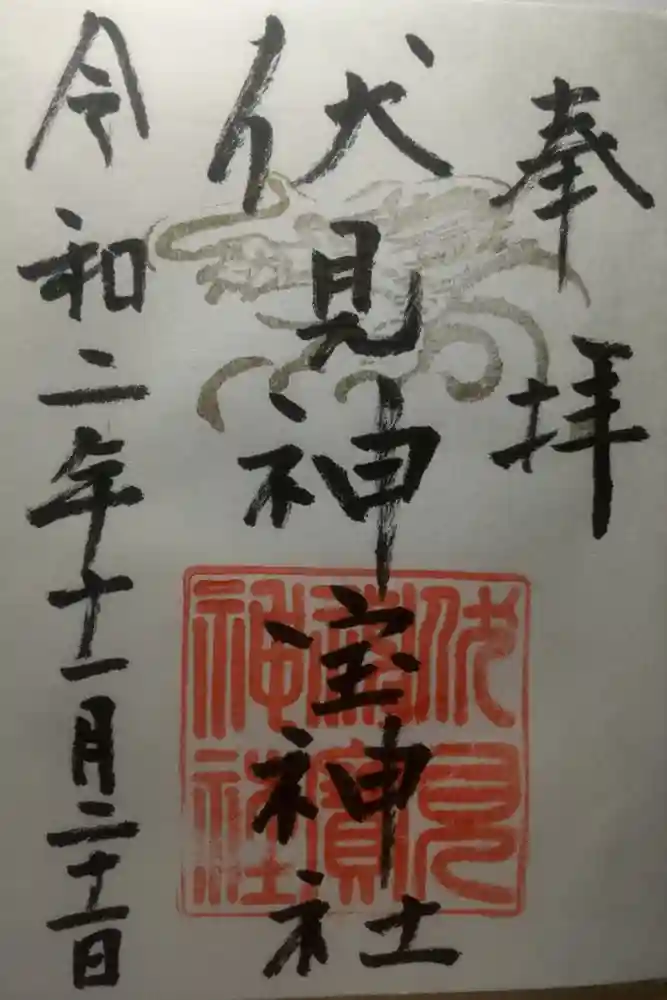 奉拝
伏見神宝神社
令和二年十一月二十一日
伏見
神寳
神社